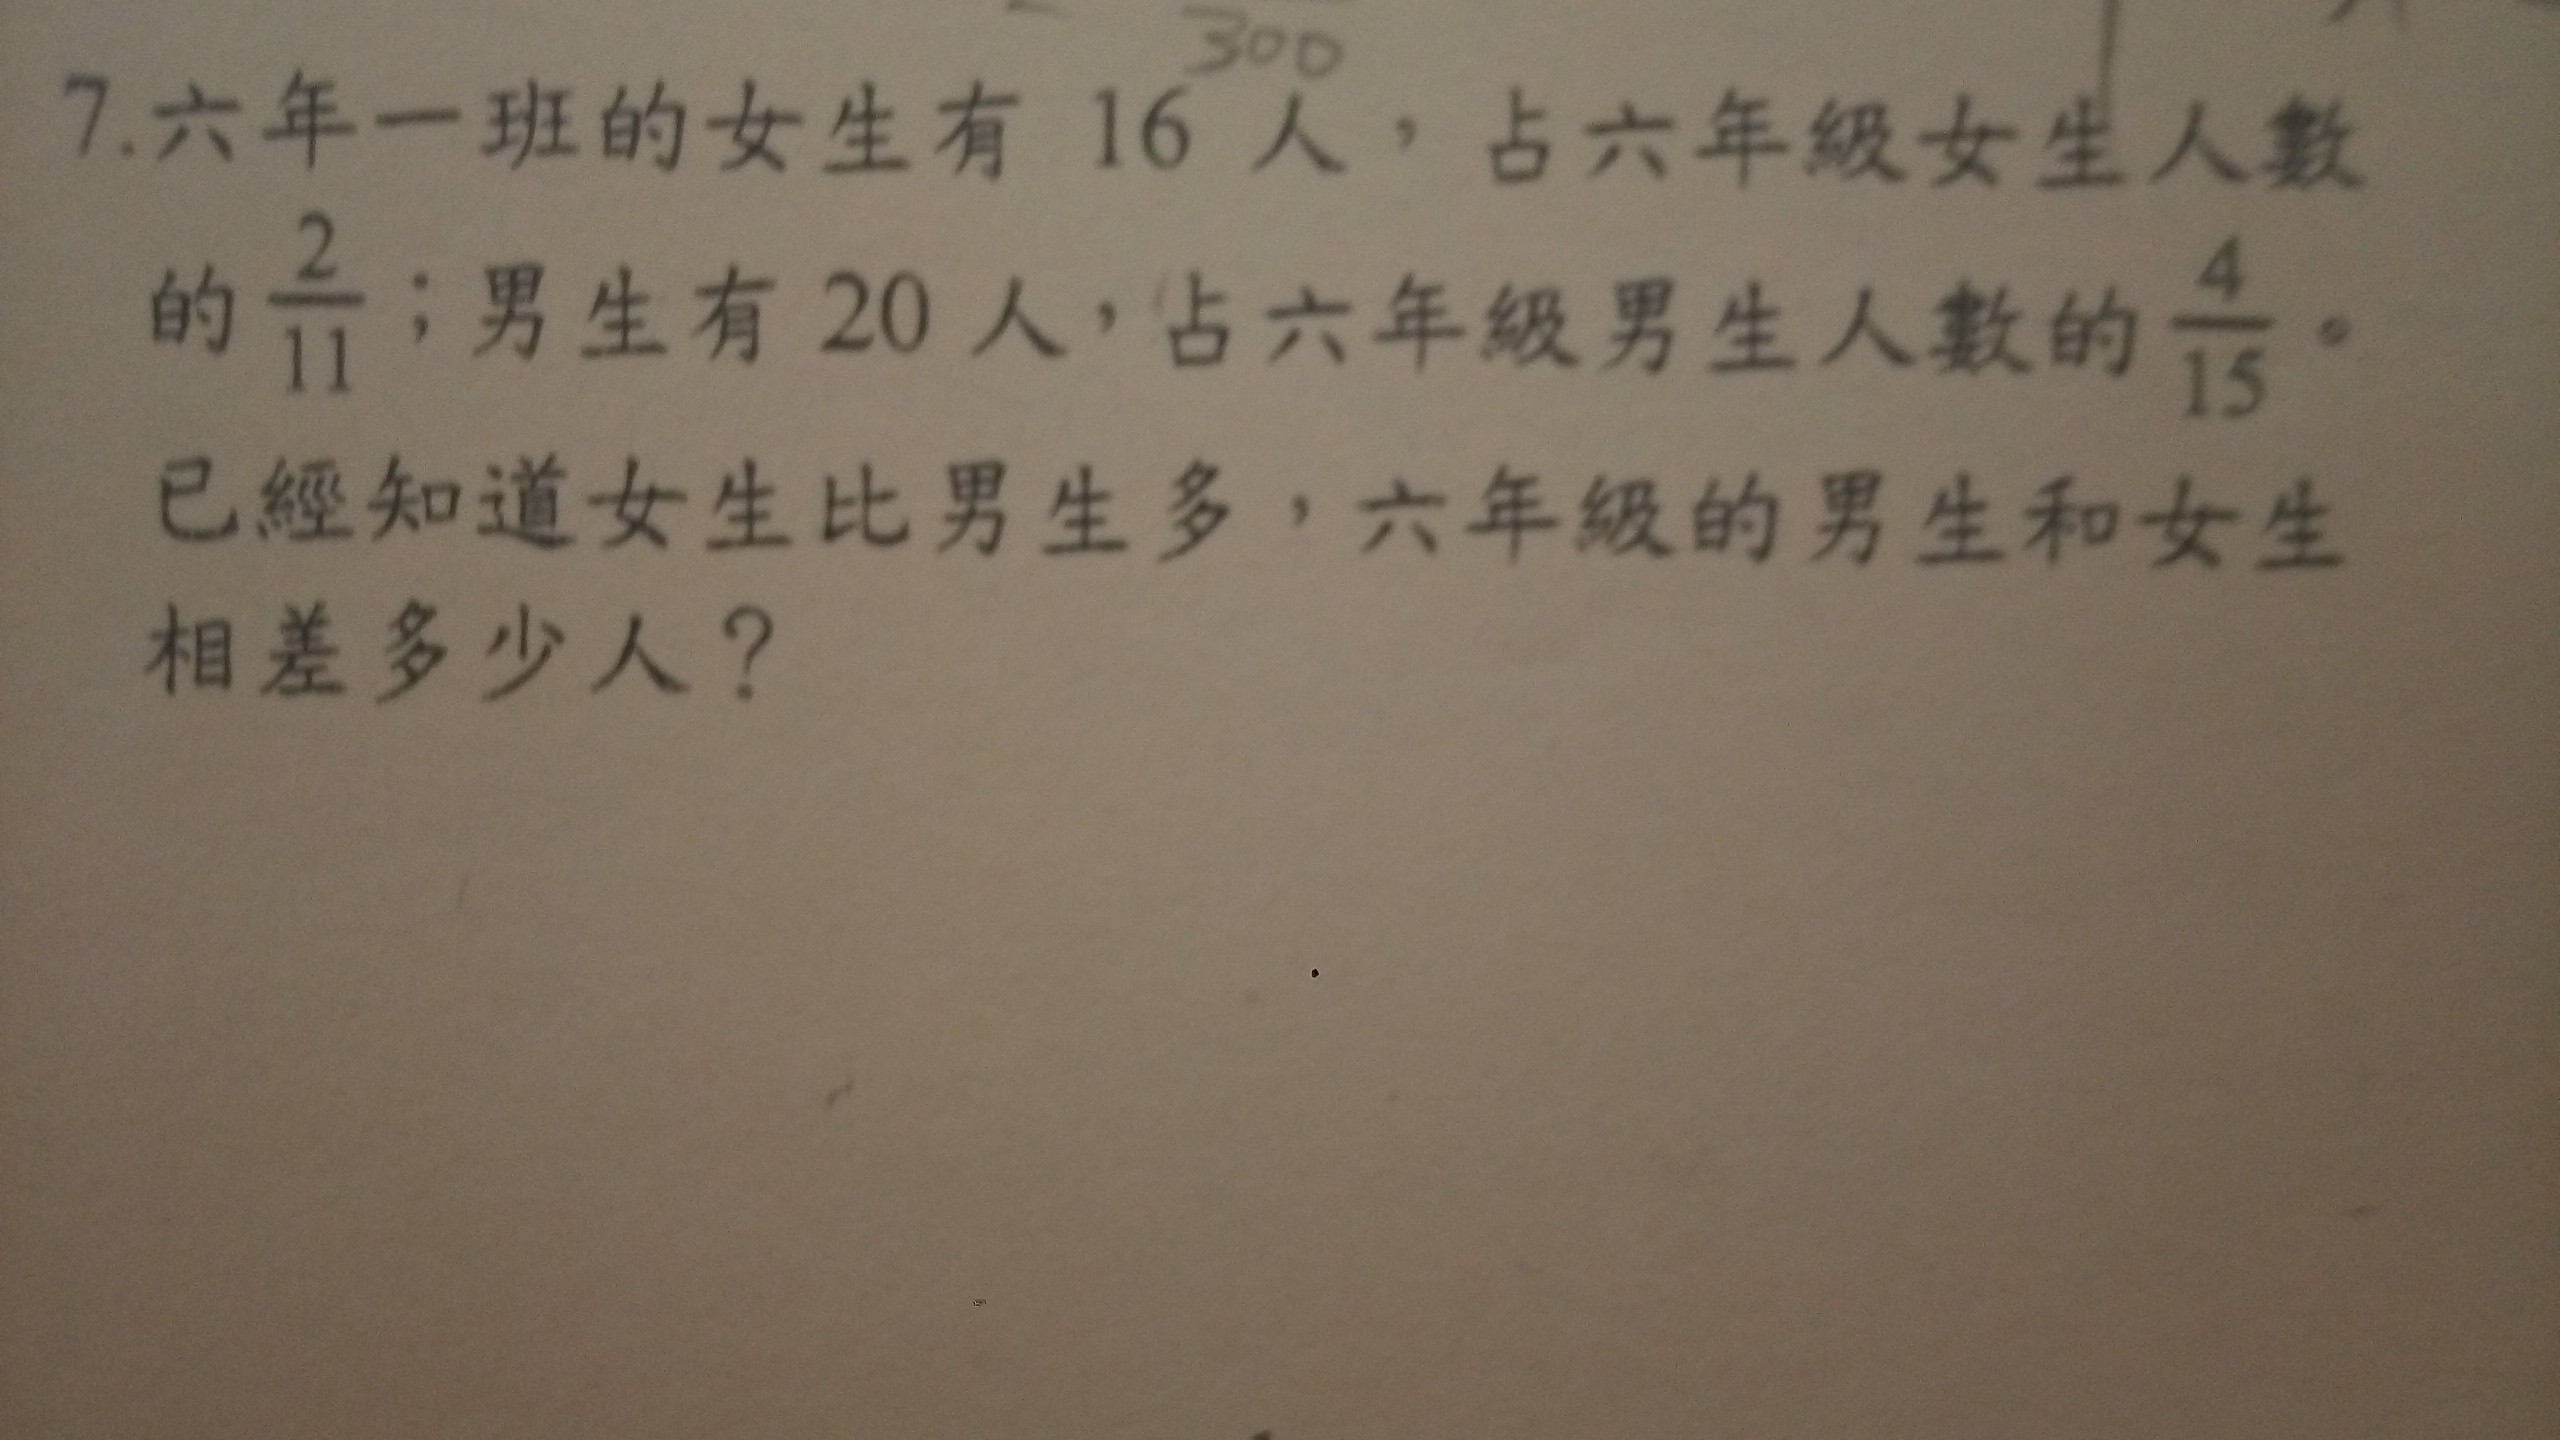 300
7.六年一班的女生有 16 人，占六年級女生人數
的 2/11；男生有 20 人，占六年級男生人數的 4/15。
已經知道女生比男生多，六年級的男生和女生
相差多少人？